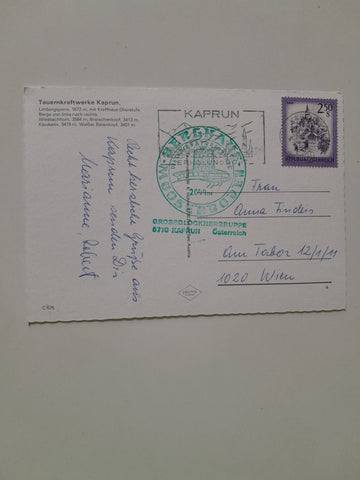 Tauernkraftwerke Kaprun,
Limbergsperre, 1672 m, mit Krafthaus-Oberstufe
Berge von links nach rechts:
Wiesbachhorn, 3564 m, Bratschenkopf, 3413 m
Klockerin, 3419 m, Großer Bärenkopf, 3401 m
Recht herzliche Grüße aus
Kaprun senden Dir
Marianne, Robert
KAPRUN
2,50
S
REPUBLIK ÖSTERREICH
MOOSERBODEN
BERGHAUS
GROSSGLOCKNERGRUPPE
5710 KAPRUN Österreich
Frau
Anna
Am Tabor 12/1/11
1020 Wien